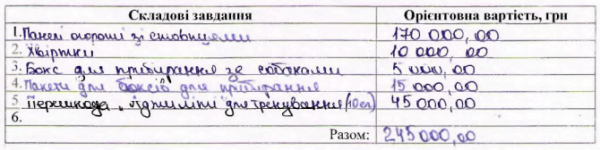 Складові завдання Орієнтовна вартість, грн
1. Панелі огорожі зі стовпцями 170 000,00
2. Хвіртки 10 000,00
3. Бокс для прибирання за собаками 5 000,00
4. Пакети для боксів для прибирання 15 000,00
5 Перешкода, для тренування (10 од) 45 000,00
6.
Разом: 245000,00